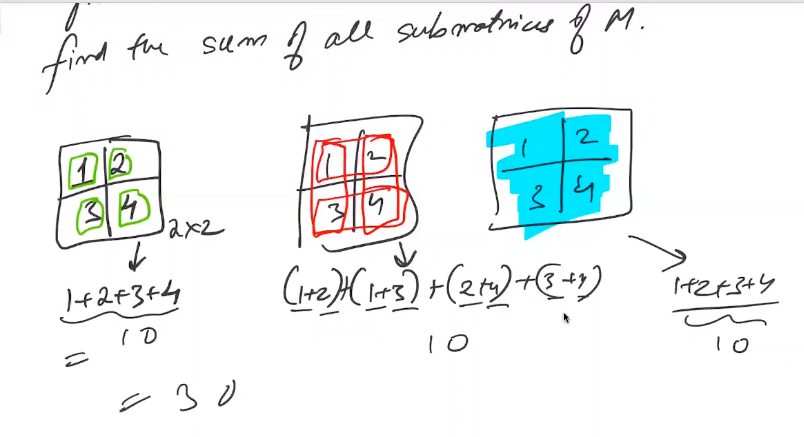 find the sum of all submatrices of M.
1 2
3 4
2x2
1 2
3 4
1 2
3 4
1+2+3+4
10
=
(1+2)+(1+3)+(2+4)+(3+4)
10
1+2+3+4
10
= 30